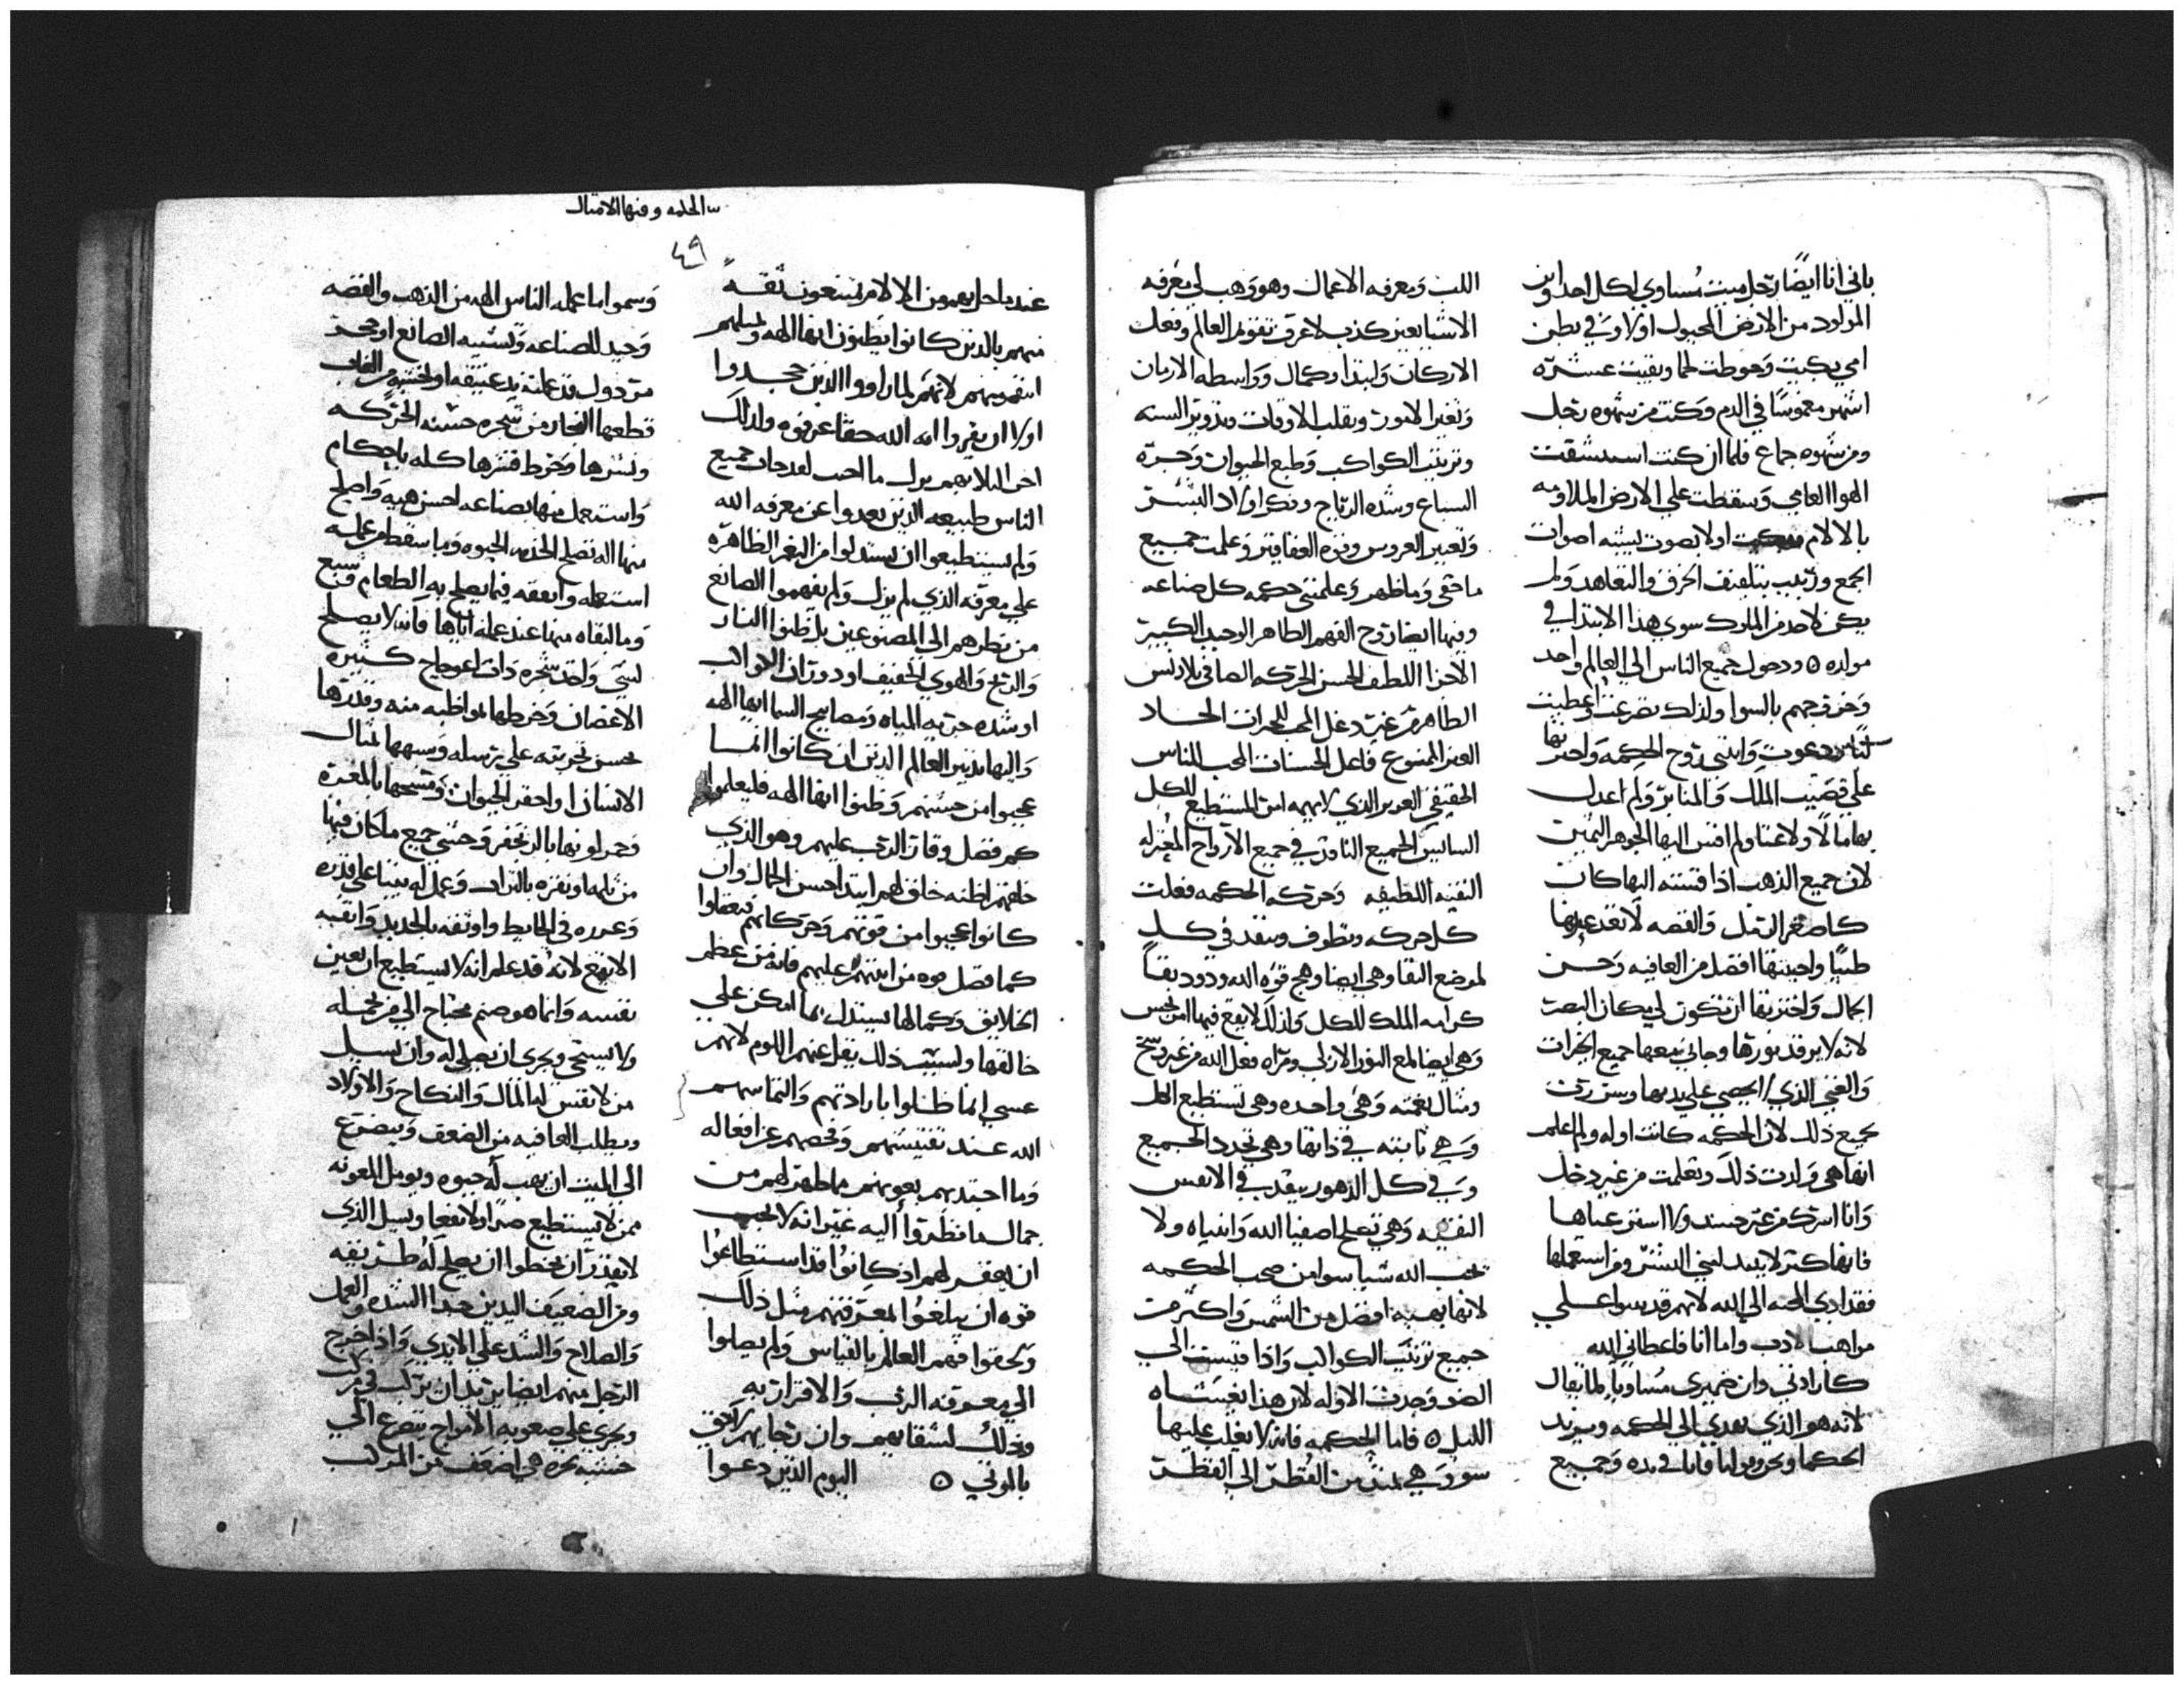 باني انا ايضا رجل ميت مساوي لكل احد وابن
المولود من الارض المجبول اولا وفي بطن
امي نحتت وحوطت لحما وبقيت عشره
اشهر مغموسا في الدم وكنت من شهوه رجل
ومن شهوه جماع فلما ان كنت استنشقت
الهوا العامي وسقطت علي الارض
بالالام اولا بصوت يشبه اصوات
الجمع وربيت بتلفيف الخرق والتعاهد ولم
يكن لاحد من الملوك سوي هذا الابتدا في
مولده ٥ ودخول جميع الناس الي العالم واحد
وخروجهم بالسوا ولذلك تضرعت واعطيت
دعوت واتتني روح الحكمه واخترتها
علي قضيب الملك والمنابر ولم اعدل
بها مالا ولا غنا ولم اقس اليها الجوهر الثمين
لان جميع الذهب اذا قسته اليها كان
كاصغر الرمل والفضه لا تعد عندها
طينا واحببتها افضل من العافيه وحسن
الجمال واخترتها ان تكون لي مكان البصر
لانه لا يرقد نورها وجاني معها جميع الخيرات
والغني الذي لا يحصي علي يديها وسررت
بجميع ذلك لان الحكمه كانت اوله ولم اعلم
انها هي ولدت ذلك وتعلمت من غير دغل
وانا اشرك من غير حسد ولا استر غناها
فانها كنز لا ينفد لبني البشر ومن استعملها
فقد ادي المحبه الي الله لانهم قدموا علي
مواهب الادب واما انا فاعطاني الله
كارادتي وان ضميري مساويا لما يقال
لانه هو الذي يهدي الي الحكمه ويريد
الحكما ونحن وقولنا في يده وجميع
اللب ومعرفه الاعمال وهو وهب لي معرفه
الاشيا بغير كذب لاعرف تقويم العالم وفعل
الاركان وابتدا وكمال وواسطه الازمان
وتغير الامور وتقلب الاوقات وتدوير السنه
وترتيب الكواكب وطبع الحيوان وحده
السباع وشده الرياح وفكر اولاد البشر
وتغيير الغروس وقوه العقاقير وعلمت جميع
ما خفي وما ظهر وعلمتني حكمه كل صناعه
وفيها ايضا روح الفهم الطاهر الوحيد الكبير
الاجزا اللطيف الحسن الحركه الصافي بلا دنس
الطاهر من غير دغل المحب للخيرات الحاد
الغير الممنوع فاعل الحسنات المحب للناس
الحقيقي العزيز الذي لا يهمه امر المستطيع للكل
السايس الجميع النافذ في جميع الارواح
النقيه اللطيفه وحركه الحكمه فعلت
كل حركه وتطوف وتنفذ في كل
لموضع النقا وهي ايضا وهج قوه الله ودود نقا
كرامه الملك للكل ولذلك لا يقع فيها امر نجس
وهي ايضا لمع النور الازلي ومراه فعل الله من غير وسخ
ومثال نعمته وهي واحده وهي تستطيع الكل
وهي ثابته في ذاتها وهي تجدد الجميع
وفي كل الدهور تنفذ في الانفس
النقيه وهي تصلح اصفيا الله وانبياه ولا
يحب الله شيا سوا من صحب الحكمه
لانها بهيه افضل من الشمس واكثر من
جميع ترتيب الكواكب واذا قيست الي
الضو وجدت الاوله لان هذا يغشاه
الليل ٥ فاما الحكمه فانه لا يغلب عليها
سو وهي تمتد من القطر الي القطر
الحكمه وفيها الامثال
٤٩
منهم بالذين كانوا يظنون انها الهه
انفسهم لانهم لما راووا الذين جحدوا
اولا ان يقروا انه الله حقا عرفوه ولذلك
اخر البلا بهم نزل
الناس طبيعه الذين بعدوا عن معرفه الله
ولم يستطيعوا ان يستدلوا من النعم الظاهره
علي معرفه الذي لم يزل ولم يفهموا الصانع
من نظرهم الي المصنوعين بل ظنوا النار
والريح والهوي الخفيف او دوران الكواكب
او شده جريه المياه ومصابيح السما انها الهه
وانها مدبر العالم الذين ان كانوا انما
عجبوا من حسنهم وظنوا انها الهه فليعلموا
كم فضل وقار الرب عليهم وهو الذي
خلقهم لانه خالق لهم ابتدا حسن الجمال وان
كانوا عجبوا من قوتهم وحركاتهم فيعقلوا
كما فضل قوه من اتقنهم عليهم فانه من عظم
الخلايق وكمالها يستدل بما امكن علي
خالقها ولسبب ذلك يقل عنهم اللوم لانهم
عسي انما ضلوا بارادتهم والتماسهم
الله عند تفتيشهم وفحصهم عن افعاله
وما اجتذبهم بعيونهم ما ظهر لهم من
جمال ما نظروا اليه غير انه لا يجب
ان يغفر لهم اذ كانوا قد استطاعوا
قوه ان يبلغوا المعرفتهم مثل ذلك
ولحقوا فهم العالم بالقياس ولم يصلوا
الي معرفه الرب والاقرار به
وذلك لشقايهم وان رجايهم
بالموتي ٥ اليوم الذين دعوا
وسموا ما عمله الناس الهه من الذهب والفضه
وجيد للصناعه وتشبيه الصانع او حجر
مرذول قد عملته يد عتيقه او خشبه من الغاب
قطعها النجار من شجره حسنه الحركه
ونشرها وخرط قشرها كله باحكام
واستعمل منها بصناعه احسن هيه واصلح
منها اله تصلح لخدمه الحيوه وما سقط من عمله
استعمله وانفقه فيما يصلح به الطعام وشبع
وما القاه منها عند عمله اياها فانه لا يصلح
لشي واخذ شجره ذات اعوجاج كثيره
الاغصان وخرطها بمواظبه منه وقدرها
بحسن تجربته علي ترسله وشبهها بمثال
الانسان او احقر الحيوان ومسحها بالمغره
وحمر لونها بالزنجفر وحشي جميع ما كان فيها
من ثلمه او نقره بالتراب وعمل له بيتا علي قدره
وغرزه في الحايط واوثقه بالحديد واتقنه
الا يقع لانه قد علم انه لا يستطيع ان يعين
نفسه وانما هو صنم محتاج الي من يحمله
ولا يستحي ويجري ان يصلي له وان يسيل
من لا نفس له المال والنكاح والاولاد
ويطلب العافيه من الضعف ويتضرع
الي الميت ان يهب له حيوه ويومل المعونه
ممن لا يستطيع ضرا ولا نفعا ويسل الذي
لا يقدر ان يخطوا ان يصلح له طريقه
ومن الضعيف اليدين جدا الشده والعمل
والصلاح والشد علي الايدي واذا خرج
الرجل منهم ايضا يريد ان يركب في مركب
ويجري علي صعوبه الامواج يتضرع الي
خشبه نخره هي اضعف من المركب